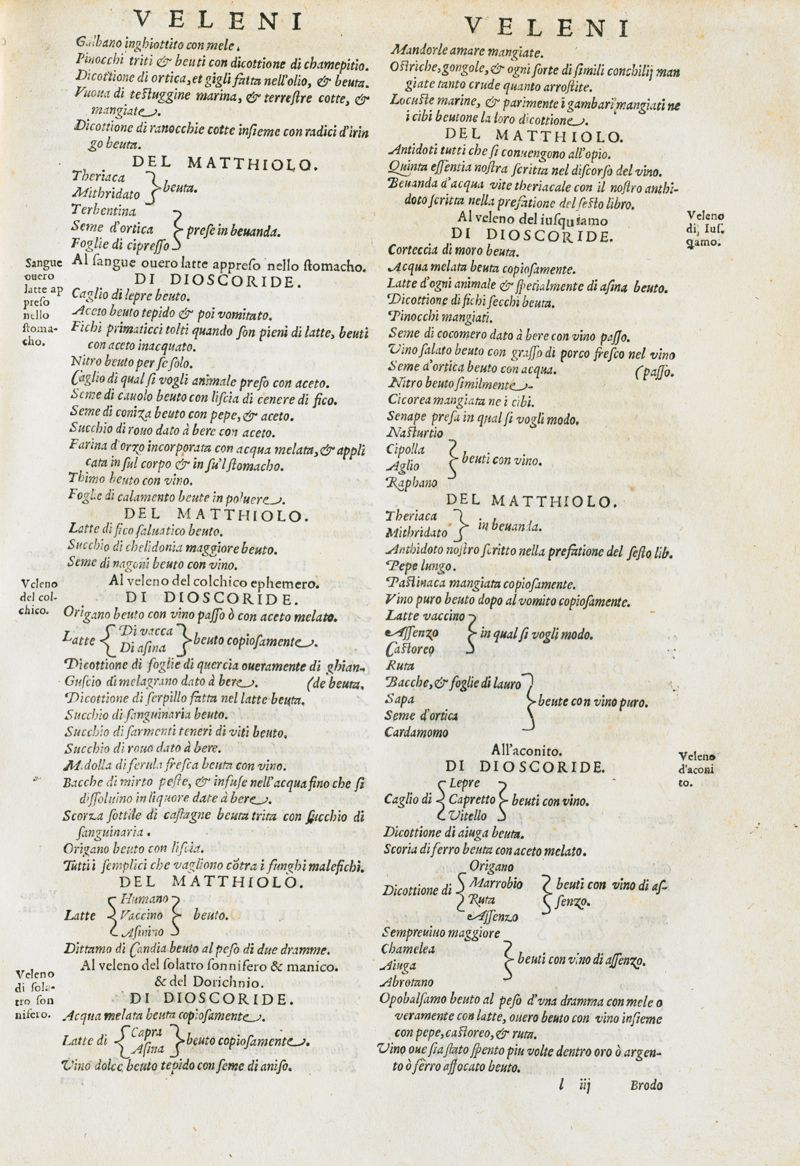 VELENI
Galbano inghiottito con mele.
Pinocchi triti & beuti con dicottione di chamepitio.
Dicottione di ortica, et gigli fatta nell'olio, & beuta.
Vuoua di testuggine marina, & terrestre cotte, &
mangiate.
Dicottione di ranocchie cotte insieme con radici d'irin
go beuta.
DEL MATTHIOLO.
Theriaca
Mithridato } beuta.
Terbentina
Seme d'ortica } prese in beuanda.
Foglie di cipresso
Sangue
ouero
latte ap
preso
nello
stoma-
cho.
Al sangue ouero latte appreso nello stomacho.
DI DIOSCORIDE.
Caglio di lepre beuto.
Aceto beuto tepido & poi vomitato.
Fichi primaticci tolti quando son pieni di latte, beuti
con aceto inacquato.
Nitro beuto per se solo.
Caglio di qual si vogli animale preso con aceto.
Seme di cauolo beuto con liscia di cenere di fico.
Seme di coniza beuto con pepe, & aceto.
Succhio di rouo dato à bere con aceto.
Farina d'orzo incorporata con acqua melata, & appli
cata in sul corpo & in su'l stomacho.
Thimo beuto con vino.
Foglie di calamento beute in poluere.
DEL MATTHIOLO.
Latte di fico saluatico beuto.
Succhio di chelidonia maggiore beuto.
Seme di nagoni beuto con vino.
Veleno
del col-
chico.
Al veleno del colchico ephemero.
DI DIOSCORIDE.
Origano beuto con vino passo ò con aceto melato.
Latte { Di vacca
Di asina } beuto copiosamente.
Dicottione di foglie di quercia oueramente di ghian-
Guscio di melagrano dato à bere. (de beuta.
Dicottione di serpillo fatta nel latte beuta.
Succhio di sanguinaria beuto.
Succhio di sarmenti teneri di viti beuto.
Succhio di rouo dato à bere.
Medolla di ferula fresca beuta con vino.
Bacche di mirto peste, & infuse nell'acqua fino che si
dissoluino in liquore date à bere.
Scorza sottile di castagne beuta trita con succhio di
sanguinaria.
Origano beuto con liscia.
Tutti i semplici che vagliono cõtra i funghi malefichi.
DEL MATTHIOLO.
Humano
Latte { Vaccino } beuto.
Asinino
Dittamo di Candia beuto al peso di due dramme.
Veleno
di sola-
tro son
nifero.
Al veleno del solatro sonnifero & manico.
& del Dorichnio.
DI DIOSCORIDE.
Acqua melata beuta copiosamente.
Latte di { Capra
Asina } beuto copiosamente.
Vino dolce beuto tepido con seme di aniso.
VELENI
Mandorle amare mangiate.
Ostriche, gongole, & ogni sorte di simili conchilij man
giate tanto crude quanto arrostite.
Locuste marine, & parimente i gambari mangiati ne
i cibi beutone la loro dicottione.
DEL MATTHIOLO.
Antidoti tutti che si conuengono all'opio.
Quinta essentia nostra scritta nel discorso del vino.
Beuanda d'acqua vite theriacale con il nostro anthi-
doto scritta nella prefatione del sesto libro.
Al veleno del iusquiamo
DI DIOSCORIDE.
Veleno
di, Ius.
qamo.
Corteccia di moro beuta.
Acqua melata beuta copiosamente.
Latte d'ogni animale & spetialmente di asina beuto.
Dicottione di fichi secchi beuta.
Pinocchi mangiati.
Seme di cocomero dato à bere con vino passo.
Vino salato beuto con grasso di porco fresco nel vino
Seme d'ortica beuto con acqua. (passo.
Nitro beuto similmente.
Cicorea mangiata ne i cibi.
Senape presa in qual si vogli modo.
Nasturtio
Cipolla
Aglio } beuti con vino.
Raphano
DEL MATTHIOLO.
Theriaca
Mithridato } in beuanda.
Anthidoto nostro scritto nella prefatione del sesto lib.
Pepe lungo.
Pastinaca mangiata copiosamente.
Vino puro beuto dopo al vomito copiosamente.
Latte vaccino
Assenzo } in qual si vogli modo.
Castoreo
Ruta
Bacche, & foglie di lauro
Sapa } beute con vino puro.
Seme d'ortica
Cardamomo
All'aconito.
DI DIOSCORIDE.
Veleno
d'aconi
to.
Lepre
Caglio di { Capretto } beuti con vino.
Vitello
Dicottione di aiuga beuta.
Scoria di ferro beuta con aceto melato.
Origano
Dicottione di { Marrobio } beuti con vino di as-
Ruta senzo.
Assenzo
Sempreuiuo maggiore
Chamelea
Aiuga } beuti con vino di assenzo.
Abrotano
Opobalsamo beuto al peso d'vna dramma con mele o
veramente con latte, ouero beuto con vino insieme
con pepe, castoreo, & ruta.
Vino oue sia stato spento piu volte dentro oro ò argen-
to ò ferro affocato beuto.
l iij Brodo